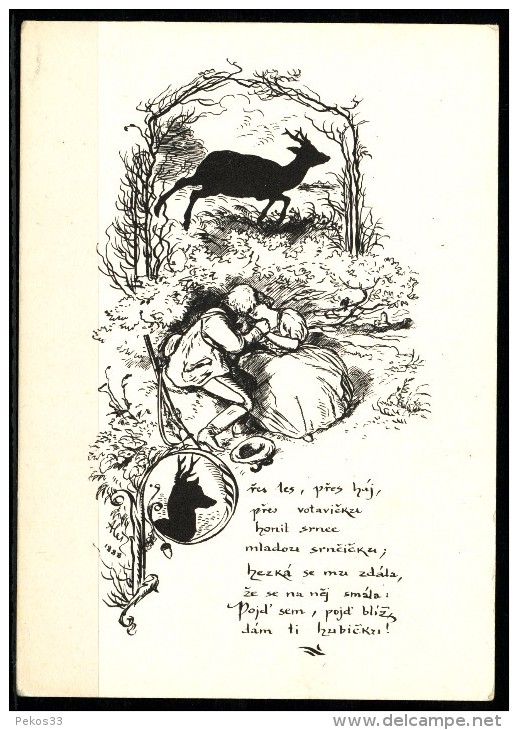 řes les, přes háj,
přes votavičku
honil srnec
mladou srnčičku;
hezká se mu zdála,
že se na něj smála:
Pojď sem, pojď blíž,
dám ti hubičku!
1888
Pekos33
www.delcampe.net